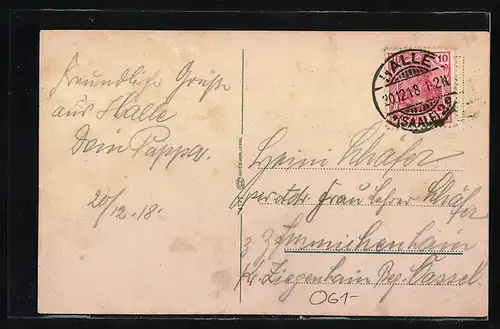 Freundliche Grüße
aus Halle
Dein Pappa.
20/12.18.
HALLE
20.12.18
(SAALE)
10
Heini Schäfer
per Adr. Frau Lehrer Schäfer
z. Z. Immichenhain
Kr. Ziegenhain Bez. Cassel.
061-